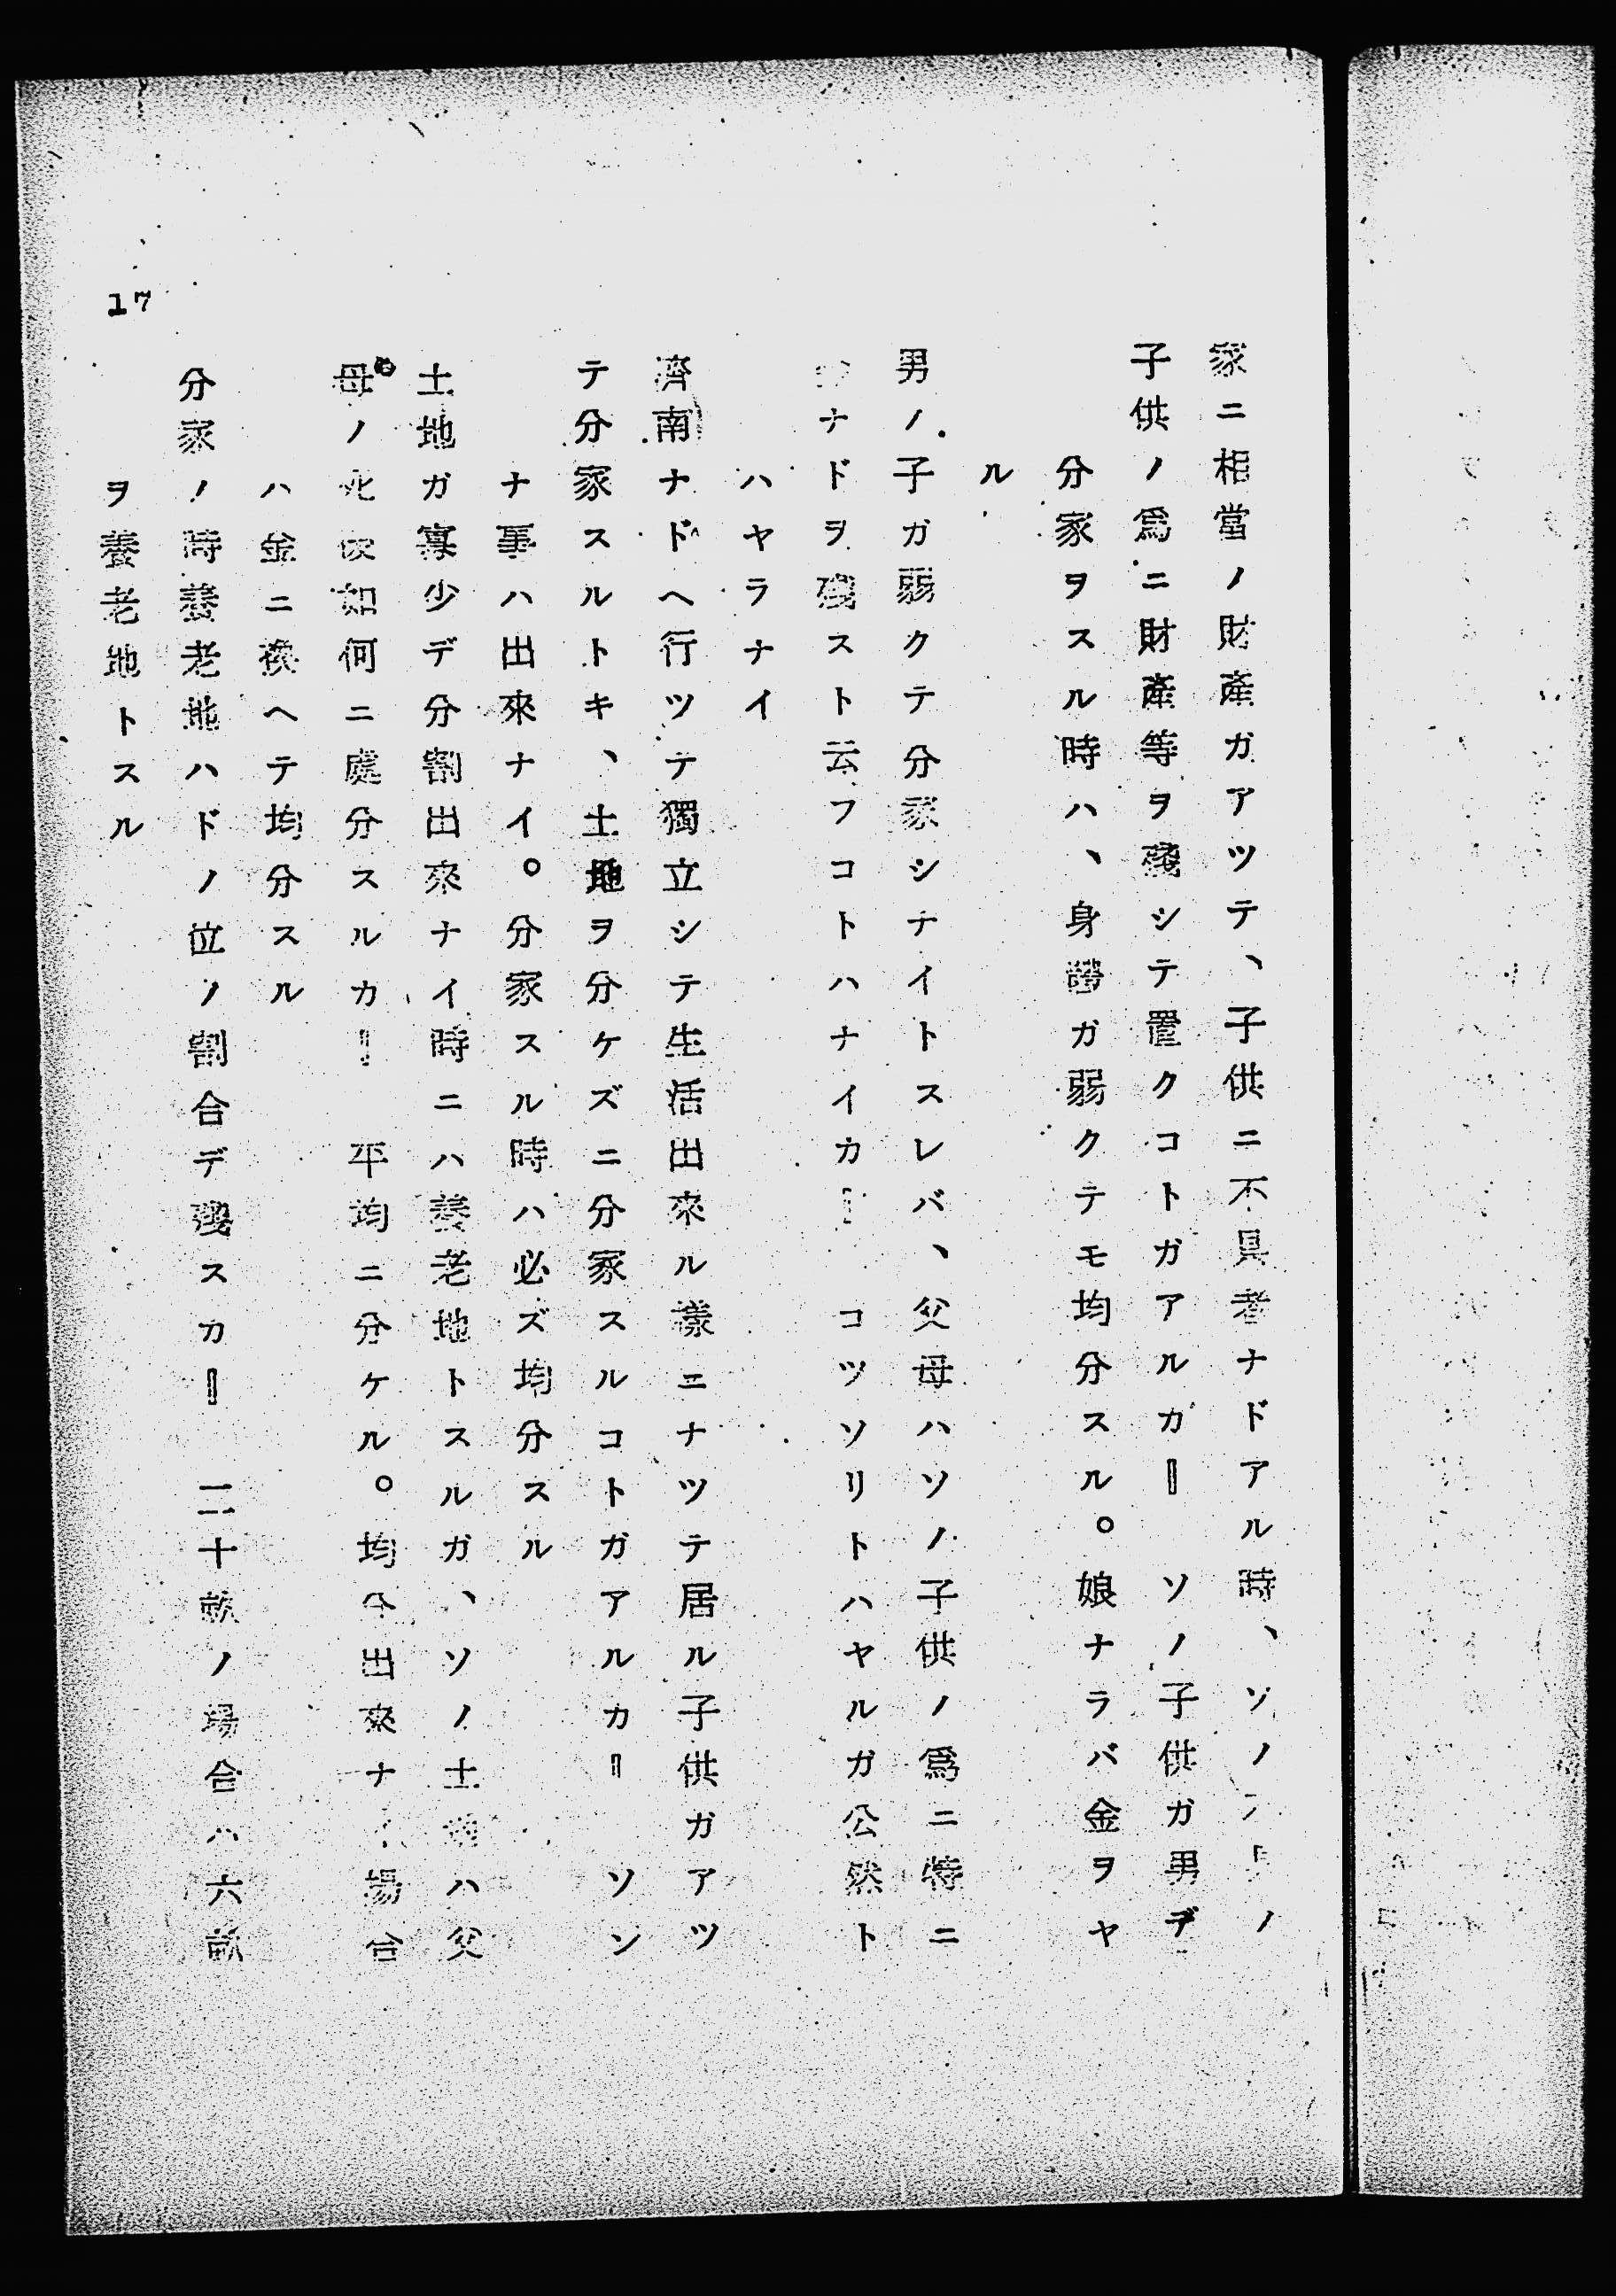 家ニ相當ノ財產ガアツテ、子供ニ不具者ナドアル時、ソノ不具ノ
子供ノ爲ニ財產等ヲ殘シテ置クコトガアルカ‖　ソノ子供ガ男デ
分家ヲスル時ハ、身體ガ弱クテモ均分スル。娘ナラバ金ヲヤ
ル
男ノ子ガ弱クテ分家シナイトスレバ、父母ハソノ子供ノ爲ニ特ニ
ナドヲ殘スト云フコトハナイカ‖　コツソリトハヤルガ公然ト
ハヤラナイ
濟南ナドヘ行ツテ獨立シテ生活出來ル樣ニナツテ居ル子供ガアツ
テ分家スルトキ、土地ヲ分ケズニ分家スルコトガアルカ‖　ソン
ナ事ハ出來ナイ。分家スル時ハ必ズ均分スル
土地ガ寡少デ分割出來ナイ時ニハ養老地トスルガ、ソノ土地ハ父
母ノ死後如何ニ處分スルカ‖　平均ニ分ケル。均分出來ナイ場合
ハ金ニ換ヘテ均分スル
分家ノ時養老地ハドノ位ノ割合デ殘スカ‖　二十畝ノ場合ハ六畝
ヲ養老地トスル
17